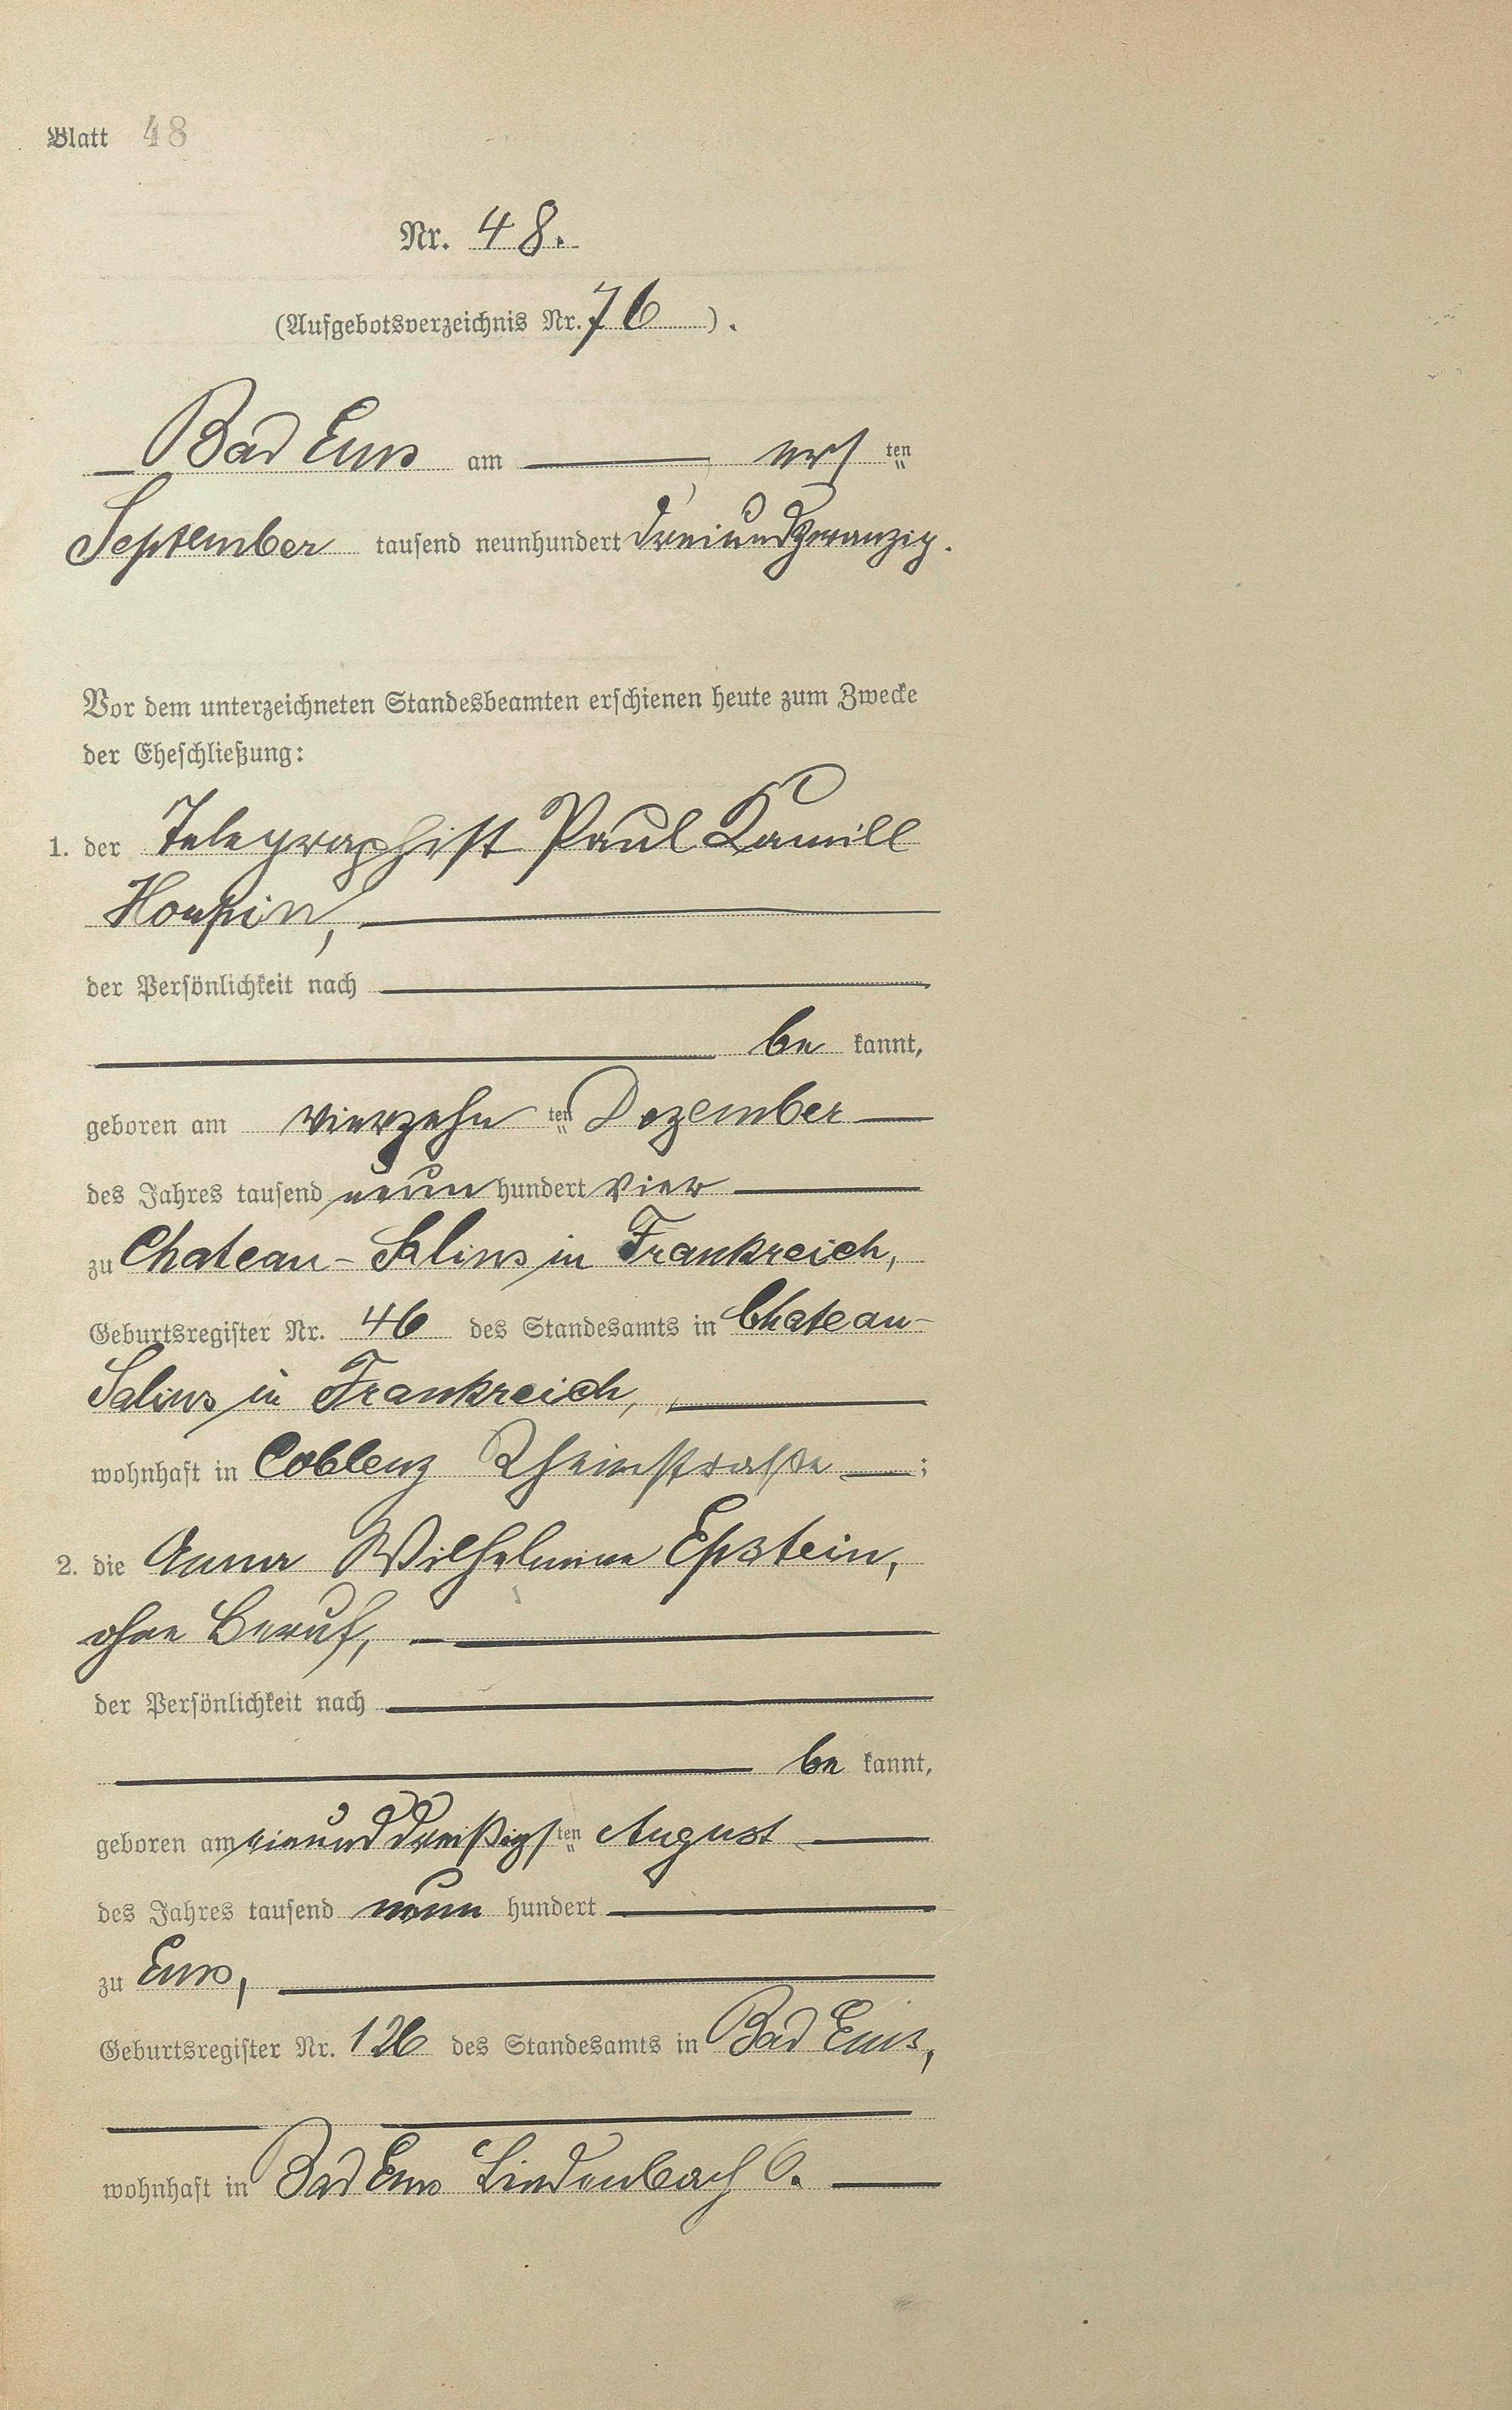 Blatt 48
Nr. 48.
(Aufgebotsverzeichnis Nr. 76).
Bad Ems am ersten
September tausend neunhundert dreiundzwanzig.
Vor dem unterzeichneten Standesbeamten erschienen heute zum Zwecke
der Eheschließung:
1. der Telegraphist Paul Kamill
Houpin,
der Persönlichkeit nach
be kannt,
geboren am vierzehn ten Dezember
des Jahres tausend neun hundert vier
zu Chateau-Salins in Frankreich,
Geburtsregister Nr. 46 des Standesamts in Chateau-
Salins in Frankreich,
wohnhaft in Coblenz Rheinstraße;
2. die Anna Wilhelmine Epstein,
ohne Beruf,
der Persönlichkeit nach
be kannt,
geboren am einunddreißigsten August
des Jahres tausend neun hundert
zu Ems,
Geburtsregister Nr. 126 des Standesamts in Bad Ems,
wohnhaft in Bad Ems Lindenbach 6.